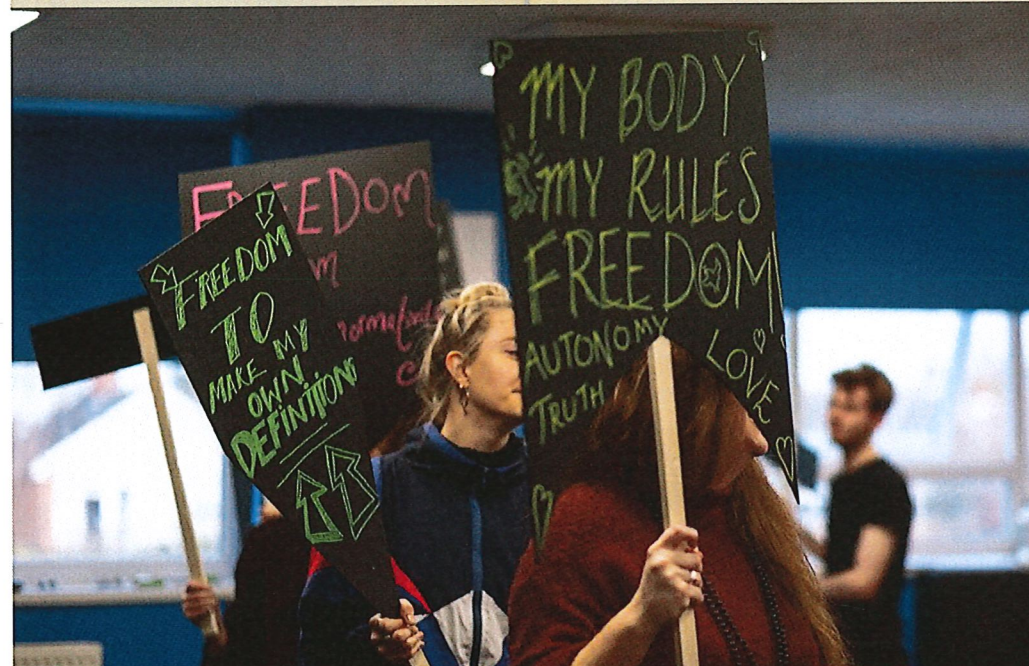 FREEDOM
FREEDOM
TO
MAKE MY
OWN
DEFINITIONS
MY BODY
MY RULES
FREEDOM!
AUTONOMY
TRUTH
LOVE